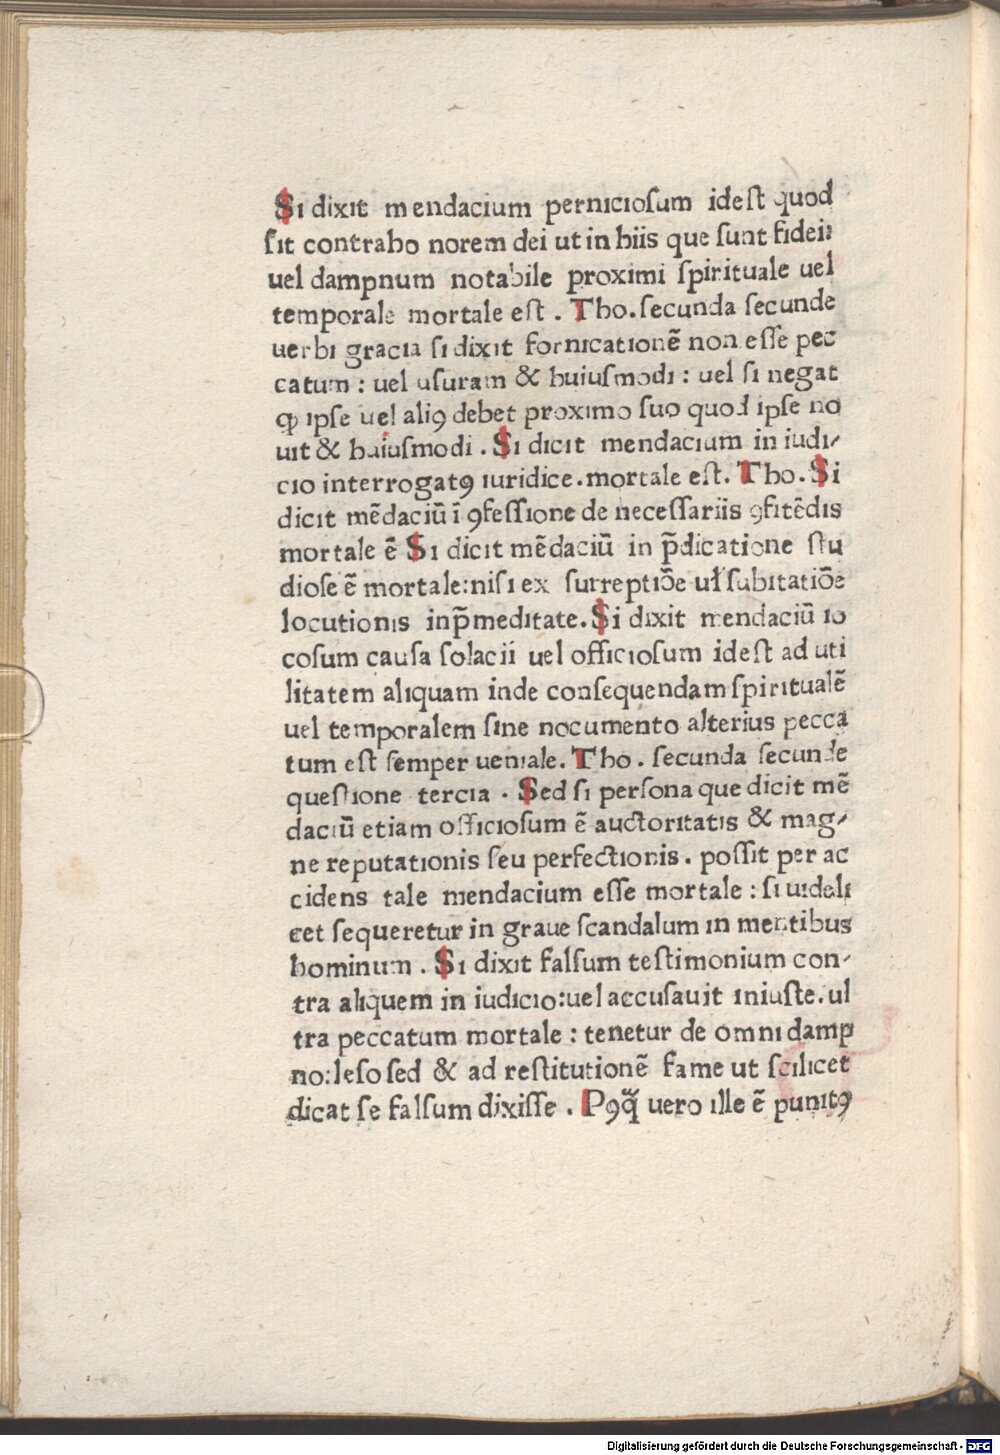 Si dixit mendacium perniciosum idest quod
sit contraho norem dei ut in hiis que sunt fidei:
uel dampnum notabile proximi spirituale uel
temporale mortale est . Tho. secunda secunde
uerbi gracia si dixit fornicationē non esse pec
catum : uel usuram & huiusmodi : uel si negat
ꝙ ipse uel aliꝯ debet proximo suo quod ipse no
uit & huiusmodi . Si dicit mendacium in iudi-
cio interrogatꝯ iuridice. mortale est. Tho. Si
dicit mēdaciū ī ꝯfessione de necessariis ꝯfitēdis
mortale ē Si dicit mēdaciū in p̄dicatione stu
diose ē mortale: nisi ex surreptiōe uł subitatiōe
locutionis inp̄meditate. Si dixit mendaciū io
cosum causa solacii uel officiosum idest ad uti
litatem aliquam inde consequendam spiritualē
uel temporalem sine nocumento alterius pecca
tum est semper ueniale. Tho . secunda secunde
questione tercia . Sed si persona que dicit mē
daciū etiam officiosum ē auctoritatis & mag-
ne reputationis seu perfectionis . possit per ac
cidens tale mendacium esse mortale : si uideli
cet sequeretur in graue scandalum in mentibus
hominum . Si dixit falsum testimonium con-
tra aliquem in iudicio: uel accusauit iniuste. ul
tra peccatum mortale : tenetur de omni damp
no: leso sed & ad restitutionē fame ut scilicet
dicat se falsum dixisse . Pꝯꝙ̄ uero ille ē punitꝯ
Digitalisierung gefördert durch die Deutsche Forschungsgemeinschaft - DFG